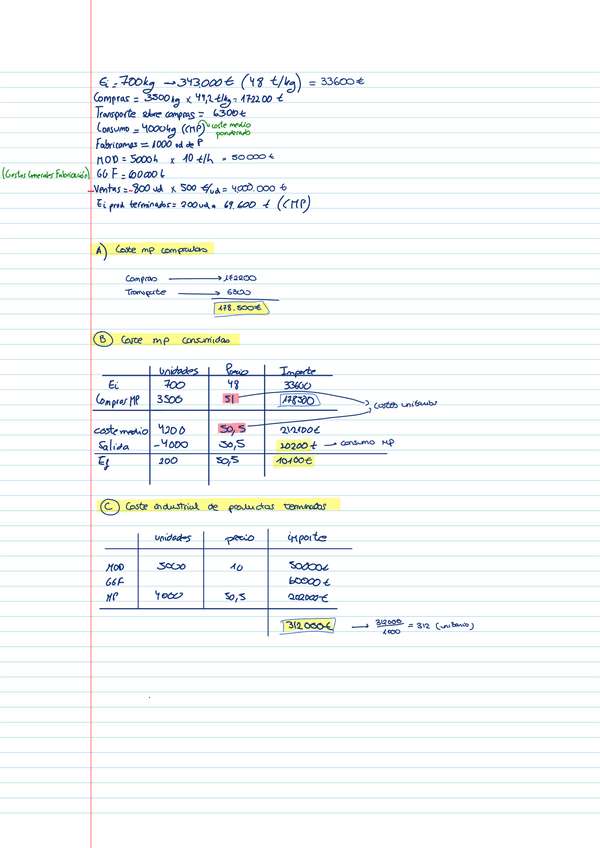 Ei = 700kg → 343.000€ (48 €/kg) = 33600€
Compras = 3500kg x 49,2 €/kg = 172200 €
Transporte sobre compras = 6300€
Consumo = 4000kg (CMP) → coste medio ponderado
Fabricamos = 1000 ud de P
MOD = 5000h x 10 €/h = 50000€
(Gastos Generales Fabricación) GGF = 60000€
Ventas = 800 ud x 500 €/ud = 4000.000 €
Ei prod terminados = 200 ud a 69.600 € (CMP)
A) Coste mp compradas
Compras → 172200
Transporte → 6300
178.500€
B Coste mp consumidas
unidades Precio Importe
Ei 700 48 33600
Compras MP 3500 51 178500 → costes unitarios
coste medio 4200 50,5 212100€
Salida -4000 50,5 20200€ → consumo MP
Ef 200 50,5 10100€
C Coste industrial de productos terminados
unidades precio importe
MOD 5000 10 50000€
GGF 60000€
MP 4000 50,5 202000€
312.000€ → 312000/1000 = 312 (unitario)